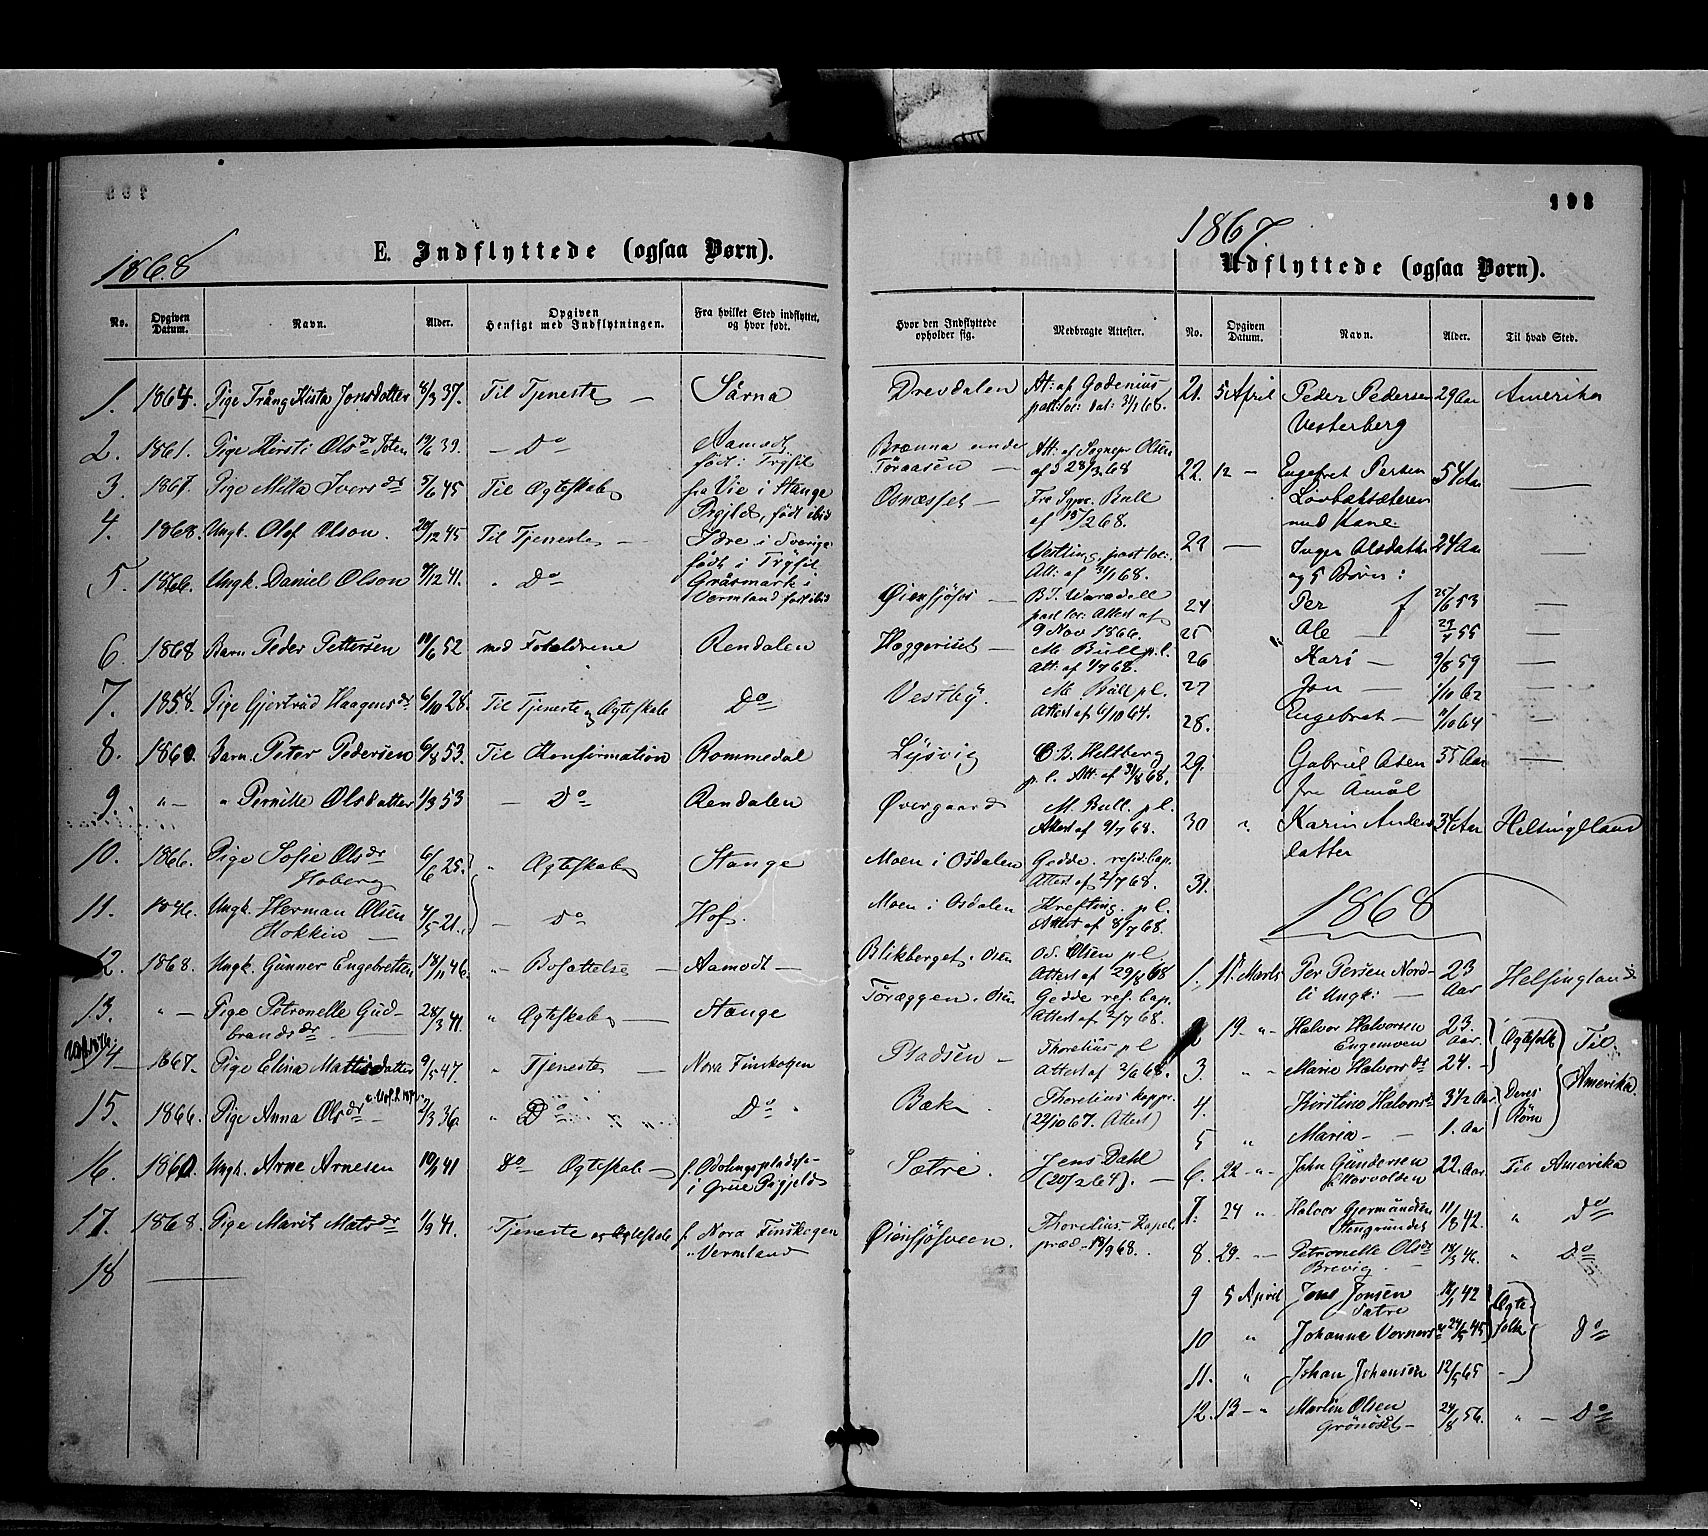 1868
E. Indflyttede (ogsaa Børn).
No. Opgiven Datum. Navn. Alder. Opgiven Hensigt med Indflytningen. Fra hvilket Sted indflyttet, og hvor født.
1. 1864. Pige Trång Kista Jonsdatter 8/3 37. Til Tjeneste — Särna
2. 1861. Pige Kirsti Olsdr 19/6 39. — Do Aamodt
født i Trysil
3. 1867. Pige Mella Iversdr 5/6 45 Til Ægteskab fra Vie i Stange
Prgjld, født ibid
4. 1868. Ungk. Olof Olson. 20/12 45 Til Tjeneste — Idre i Sverige
født i Trysil
5. 1866. Ungk. Daniel Olson 7/12 41. " Do Gräsmark i
Vermland født ibid
6. 1868 Barn Peder Pettersen 10/6 52 med Forældrene Rendalen
7. 1858. Pige Gjertrud Haagensdr 6/10 28. Til Tjeneste og Ægteskab Do
8. 1860. Barn. Peter Pedersen 6/8 53. Til Konfirmation Rommedal
9. " — " Pernille Olsdatter 1/3 53 — Do Rendalen
10. 1866. Pige Sofie Olsdr 6/6 25. " Ægteskab Stange
Hoberg
11. 1846. Ungk. Herman Olsen 4/5 21. — Do Hof.
Kokkin —
12. 1868. Ungk. Gunner Engebretsen 18/11 46. " Bosættelse — Aamodt —
13. " — Pige Petronelle Gud- 28/3 41. " Ægteskab — Stange
brandsdr
14 1867. Pige Elina Mattisdatter 9/5 47. " Tjeneste Nora Finskogen
15. 1866. Pige Anna Olsdr 2/3 36. " Do Do
16. 1860. Ungk. Arne Arnesen 10/1 41 Do Ægteskab —
i Grue Prgjeld
17. 1868. Pige Marit Matsdr 1/9 41. Tjeneste og Ægteskab f. Nora Finskogen
i Vermland
18 —
193
Hvor den Indflyttede opholder sig. Medbragte Attester.
Drevdalen At: af Godenius
past: loc: dat: 3/1 68.
Brænna under Att: af Sognepr Olsen
Töraasen — af d 28/3 68
Osnæsset — Fra Sgpr. Bull
af 15/2 68.
Vestling past loc:
Att: af 31/1 68.
Øiensjöfos —
past loc. Attest af
9 Nov 1866.
Haggeriset — M. Bull p. l.
Att: af 4/7 68.
Vestby. M. Bull p l.
Attest af 6/10 64.
Lysvig O. B. Heltberg
p. l. Att. af 31/8 68.
Øvergaard M. Bull. p l.
Attest af 9/7 68.
Moen i Osdalen Gedde. resid. Cap.
Attest af 2/7 68.
Moen i Osdalen Krefting. p l.
Attest af 8/7 68.
Blikberget. Osen Od. Olsen p l.
Attest af 29/8 68
Töræggen. Osen Gedde res. Cap.
Attest af 2/7 68.
Pladsen — Thorelius p l
Attest af 3/6 68.
Bæk Thorelius kapp.
(29/10 67. Attest)
Sætre. Jens Dahl
(20/2 64). —
Øiensjösveen. Thorelius Kapel.
præd. 18/9 68.
1867
Udflyttede (ogsaa Børn).
No. Opgiven Datum. Navn. Alder. Til hvad Sted.
21. 5 April Peder Pedersen 29 Aar Amerika
Vesterberg
22. 12 — Engebret Persen 54 Aar —
med Kone
23 — Inger Olsdatter 24 Aar —
og 5 Børn:
24 Per 25/6 53 —
25 Ole — 29/4 55 —
26 Kari — 9/8 59 —
27 Jon — 1/10 62
28. Engebret — 11/10 64 —
29. Gabriel Asen 35 Aar —
fra Åmål
30 " Karin Anders 34 Aar Helsingland
datter
31.
1868
1. 17. Marts Per Persen Nord- 23 Aar Helsingland
li Ungk: —
2 19. " Halvor Halvorsen 23. Aar. Ægtefolk Til
Engemoen
3. " " Marie Halvorsdr 24. — Amerika
4. Kirstine Halvorsdr 3 1/2 Aar Deres
Börn
5 " Maria — 1. Aar
6. 22 — " John Gundersen 22. Aar Til Amerika
7. 24 " Halvor Germundsen 11/8 42. " Do
Stengrundet
8. 29. — Petronelle Olsdr 18/3 46. " Do
Brevig.
9 5 April Jone Jonsen 14/1 42 Ægte-
Sætre
10 " Johanne Vernersdr 24/5 45 folk Do
11. " Johan Johansen 12/5 65 —
12. 13 — " Martin Olsen 24/8 56. " — Do
Grönoset —